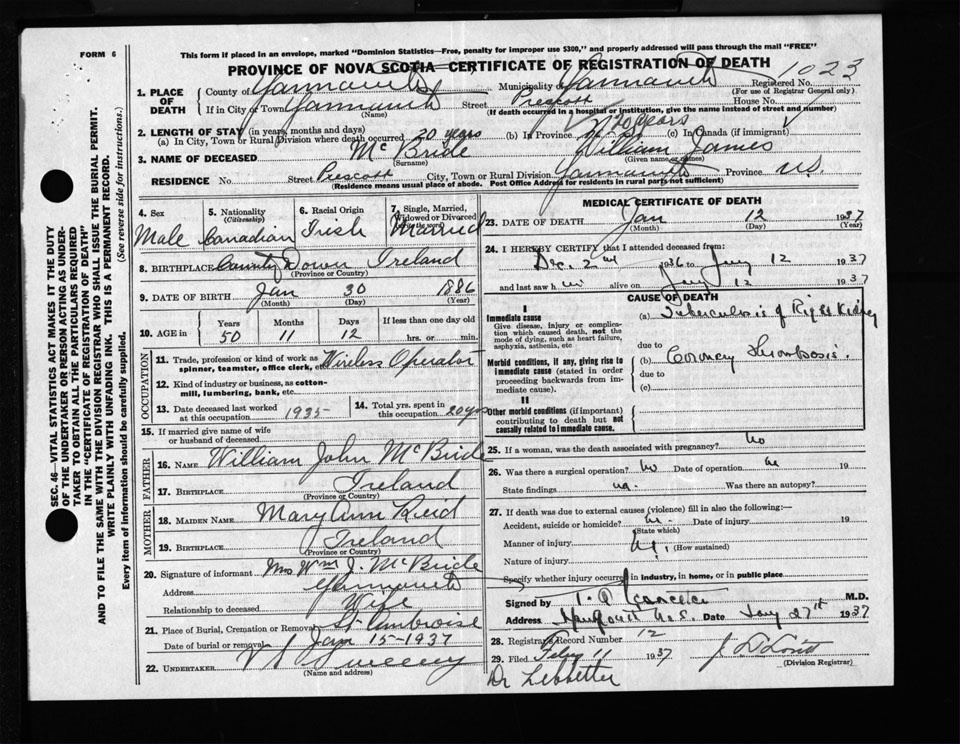 FORM 6
This form if placed in an envelope, marked "Dominion Statistics—Free, penalty for improper use $300," and properly addressed will pass through the mail "FREE"
PROVINCE OF NOVA SCOTIA—CERTIFICATE OF REGISTRATION OF DEATH
1023
1. PLACE OF DEATH
County of Yarmouth Municipality of Yarmouth Registered No.
(For use of Registrar General only)
If in City or Town Yarmouth Street Prescott House No.
(Name) (If death occurred in a hospital or institution, give the name instead of street and number)
2. LENGTH OF STAY (in years, months and days)
(a) In City, Town or Rural Division where death occurred 20 years (b) In Province 20 years (c) In Canada (if immigrant)
3. NAME OF DECEASED McBride William James
(Surname) (Given name or names)
RESIDENCE No. Street Prescott City, Town or Rural Division Yarmouth Province N.S.
(Residence means usual place of abode. Post Office Address for residents in rural parts not sufficient)
4. Sex Male
5. Nationality (Citizenship) Canadian
6. Racial Origin Irish
7. Single, Married, Widowed or Divorced (write the word) Married
8. BIRTHPLACE County Down Ireland
(Province or Country)
9. DATE OF BIRTH Jan 30 1886
(Month) (Day) (Year)
10. AGE in Years Months Days If less than one day old
50 11 12 hrs. or min.
OCCUPATION
11. Trade, profession or kind of work as spinner, teamster, office clerk, etc. Wireless Operator
12. Kind of industry or business, as cotton-mill, lumbering, bank, etc.
13. Date deceased last worked at this occupation 1935
14. Total yrs. spent in this occupation 20 yrs
15. If married give name of wife or husband of deceased
FATHER
16. NAME William John McBride
17. BIRTHPLACE Ireland
(Province or Country)
MOTHER
18. MAIDEN NAME Mary Ann Reid
19. BIRTHPLACE Ireland
(Province or Country)
20. Signature of informant Mrs Wm J. McBride
Address Yarmouth
Relationship to deceased Wife
21. Place of Burial, Cremation or Removal St Ambroise
Date of burial or removal Jan 15-1937
22. UNDERTAKER V J Sweeny
(Name and address)
MEDICAL CERTIFICATE OF DEATH
23. DATE OF DEATH Jan 12 1937
(Month) (Day) (Year)
24. I HEREBY CERTIFY that I attended deceased from:
Dec. 2nd 1936 to Jany 12 1937
and last saw h im alive on Jany 12 1937
CAUSE OF DEATH
I
Immediate cause
Give disease, injury or complication which caused death, not the mode of dying, such as heart failure, asphyxia, asthenia, etc
(a) Tuberculosis of Right Kidney
due to
Morbid conditions, if any, giving rise to immediate cause (stated in order proceeding backwards from immediate cause).
(b) Coronary Thrombosis.
due to
(c)
II
Other morbid conditions (if important) contributing to death but not causally related to immediate cause.
25. If a woman, was the death associated with pregnancy? no
26. Was there a surgical operation? no Date of operation 19
State findings Was there an autopsy?
27. If death was due to external causes (violence) fill in also the following:—
Accident, suicide or homicide? Date of injury 19
(State which)
Manner of injury (How sustained)
Nature of injury
Specify whether injury occurred in industry, in home, or in public place
Signed by M.D.
Address N.S. Date Jany 27th 1937
28. Registrar's Record Number 12
29. Filed Feby 11 1937
(Division Registrar)
Dr Lebbetter
SEC. 46—VITAL STATISTICS ACT MAKES IT THE DUTY
OF THE UNDERTAKER OR PERSON ACTING AS UNDERTAKER TO OBTAIN ALL THE PARTICULARS REQUIRED
IN THE "CERTIFICATE OF REGISTRATION OF DEATH"
AND TO FILE THE SAME WITH THE DIVISION REGISTRAR WHO SHALL ISSUE THE BURIAL PERMIT.
WRITE PLAINLY WITH UNFADING INK. THIS IS A PERMANENT RECORD.
Every item of information should be carefully supplied. (See reverse side for instructions.)